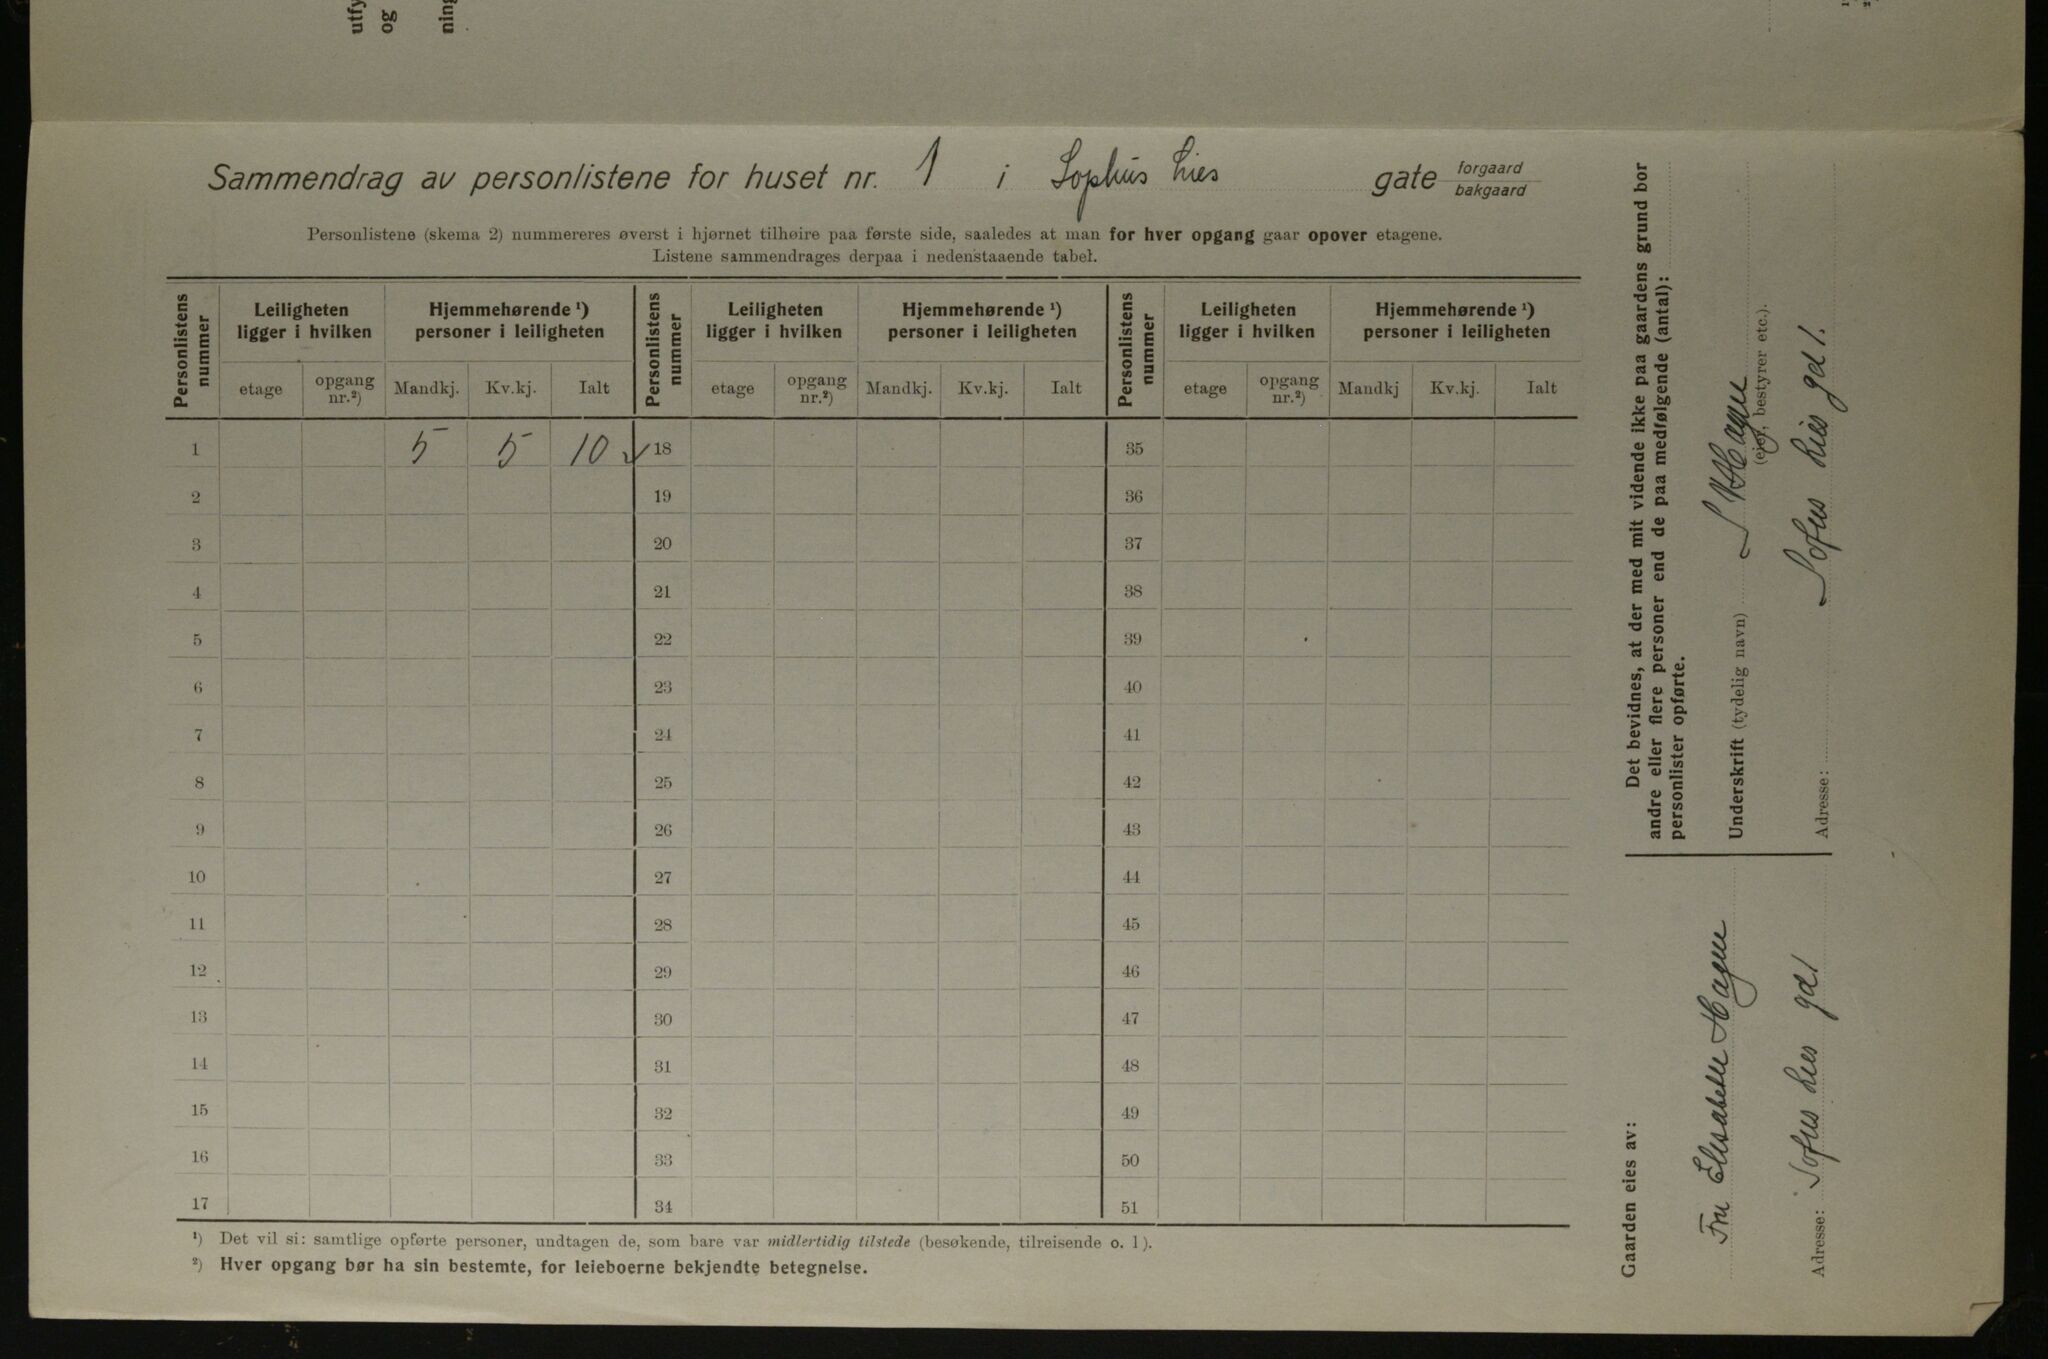 utfy
og
ning
Sammendrag av personlistene for huset nr. 1 i Sophus Lies gate forgaard bakgaard
Personlistene (skema 2) nummereres øverst i hjørnet tilhøire paa første side, saaledes at man for hver opgang gaar opover etagene.
Listene sammendrages derpaa i nedenstaaende tabel.
Personlistens nummer Leiligheten ligger i hvilken Hjemmehørende ¹) personer i leiligheten Personlistens nummer Leiligheten ligger i hvilken Hjemmehørende ¹) personer i leiligheten Personlistens nummer Leiligheten ligger i hvilken Hjemmehørende ¹) personer i leiligheten
etage opgang nr.²) Mandkj. Kv.kj. Ialt etage opgang nr.²) Mandkj. Kv.kj. Ialt etage opgang nr.²) Mandkj Kv.kj. Ialt
1 5 5 10 ✓ 18 35
2 19 36
3 20 37
4 21 38
5 22 39
6 23 40
7 24 41
8 25 42
9 26 43
10 27 44
11 28 45
12 29 46
13 30 47
14 31 48
15 32 49
16 33 50
17 34 51
¹) Det vil si: samtlige opførte personer, undtagen de, som bare var midlertidig tilstede (besøkende, tilreisende o. l).
²) Hver opgang bør ha sin bestemte, for leieboerne bekjendte betegnelse.
Det bevidnes, at der med mit vidende ikke paa gaardens grund bor
andre eller flere personer end de paa medfølgende (antal):
personlister opførte.
Underskrift (tydelig navn) Hagen
(eier, bestyrer etc.).
Adresse: Sofus Lies gd 1.
Gaarden eies av:
Fru Elisabeth Hagen
Adresse: Sofus Lies gd 1